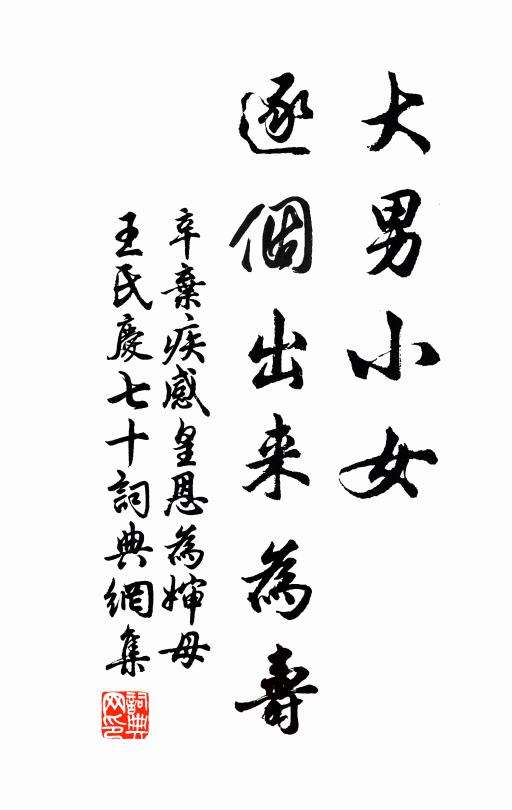 大男小女
逐個出来為壽
辛棄疾感皇恩為嬸母
王氏慶七十詞典網集
詞典
网印